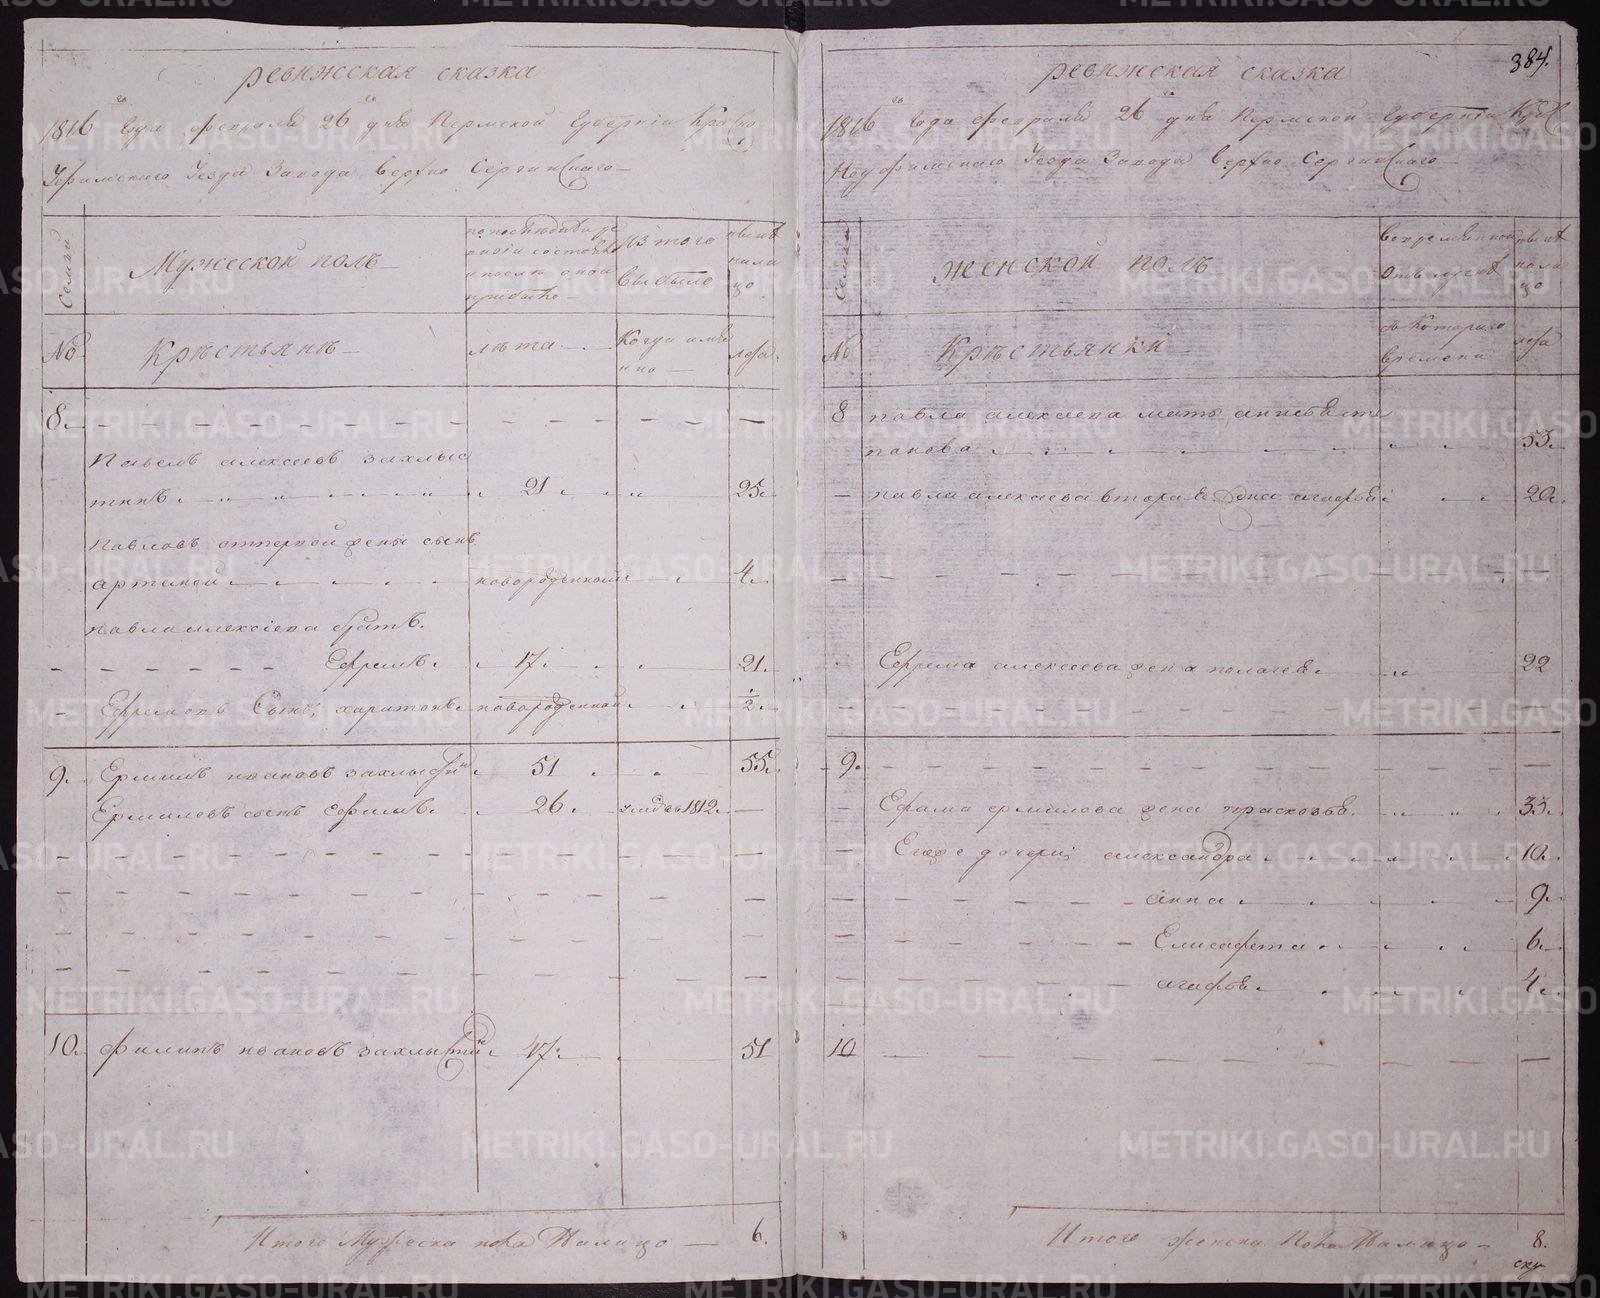 384.
ревижская сказка
1816го года февраля 26го дня Пермской Губернiи Красно
Уфимскаго Уезда Завода верхно Сергинскаго
Семьи
Мужеской полъ
по последней ре
визiи состояло
и после оной
прибыло
Из того
выбыло
ныне
нали
цо
№
Крѣстьянѣ
лѣта
Когда имя
нно
лета
8.
Павелъ алексеевъ захлыс
тинъ
21
25.
Павловъ отпервой жены сынъ
артемей
новорожденной
4.
павла алексiева братъ.
Ефремъ
17
21.
Ефремовъ Сынъ, харитонъ
новорожденной
1/2.
9.
Ермилъ ивановъ захлыстин
51
55.
Ермиловъ сынъ ефимъ
26.
умре въ 1812.
10.
Филипъ ивановъ захлыстин
47.
51
Итого Мужеска пола Налицо
6.
ревижская сказка
1816го года февраля 26го дня Пермской Губернiи Крас
ноуфимскаго Уезда Завода верхно Сергинскаго
Семьи
женской полъ
вовременной
отълучке
ныне
нали
цо
№
Крѣстьянки
съ Котораго
времени
лета
8
павла алексеева мать анисья сте
панова
53.
павла алексеева вторая жена агафья
20.
Ефрема алексеева жена пелагея
22
9.
Ефима ермилова жена прасковья
35.
Егоже дочери, александра
10.
анна
9.
Елисафета
6.
агафья
4.
10
Итого женска Пола Налицо
8.